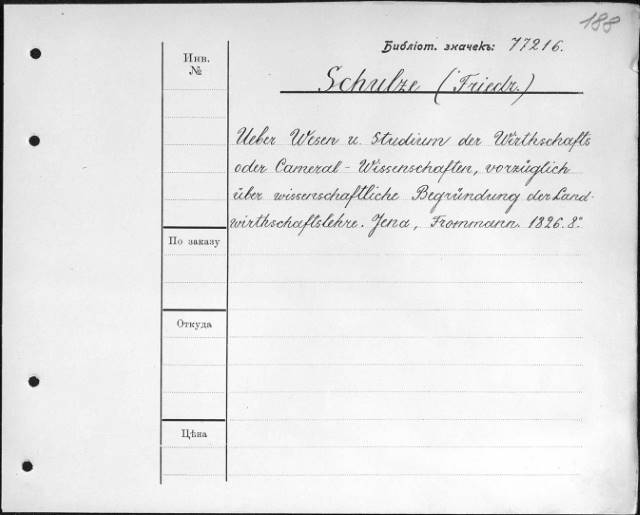 188
Библіот. значекъ: 77216.
Инв.
№
Schulze (Friedr.)
Ueber Wesen u. Studium der Wirthschafts
oder Cameral-Wissenschaften, vorzüglich
über wissenschaftliche Begründung der Land-
wirthschaftslehre. Jena, Frommann. 1826. 8°.
По заказу
Откуда
Цѣна